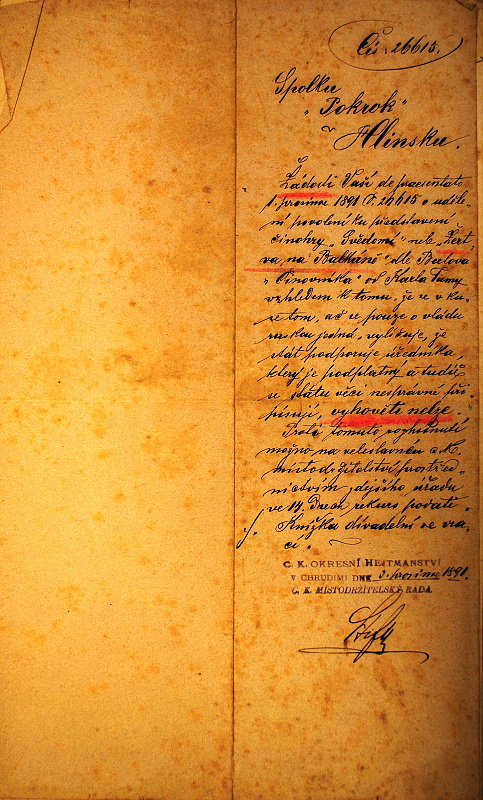 Čís: 26615.
Spolku
„Pokrok“
v Hlinsku.
Žádosti Vaší de praesentato
1. prosince 1891 č. 26615 o uděle-
ní povolení ku představení
činohry „Svědomí“ neb „Žert-
va na Balkáně“ dle
„Činovníka“ od Karla Tůmy
vzhledem k tomu, že se v ku-
se tom, ač se pouze o vládu
ruskou jedná, vylišuje, že
stát podporuje úředníka,
který je podplatný a tudíž
se státu věci nesprávné při-
pisují, vyhověti nelze.
Proti tomuto rozhodnutí
možno na veleslavné c. k.
místodržitelství prostřed-
nictvím zdejšího úřadu
ve 14 dnech rekurs podati.
Knížka divadelní se vra-
cí.
C. K. OKRESNÍ HEJTMANSTVÍ
V CHRUDIMI DNE 3. prosince 1891.
C. K. MÍSTODRŽITELSKÝ RADA